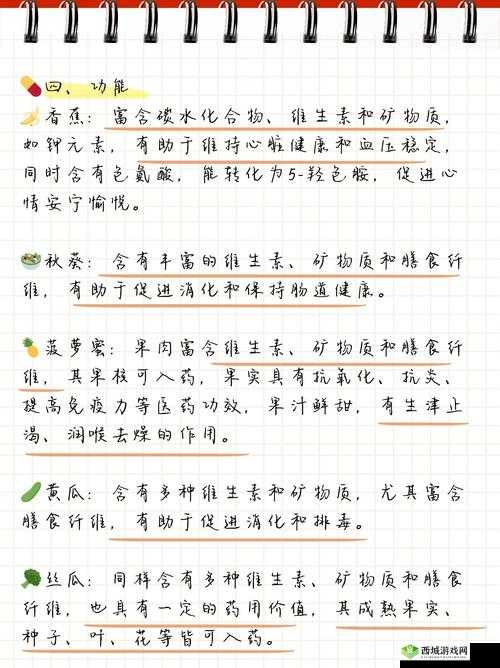 四、功能
香蕉：富含碳水化合物、维生素和矿物质，
如钾元素，有助于维持心脏健康和血压稳定，
同时含有色氨酸，能转化为5-羟色胺，促进心
情安宁愉悦。
秋葵：含有丰富的维生素、矿物质和膳食纤
维，有助于促进消化和保持肠道健康。
菠萝蜜：果肉富含维生素、矿物质和膳食纤
维，其果核可入药，果实具有抗氧化、抗炎、
提高免疫力等医药功效，果汁鲜甜，有生津止
渴、润喉去燥的作用。
黄瓜：含有多种维生素和矿物质，尤其富含
膳食纤维，有助于促进消化和排毒。
丝瓜：同样含有多种维生素、矿物质和膳食
纤维，也具有一定的药用价值，其成熟果实、
种子、叶、花等皆可入药。
西城游戏网